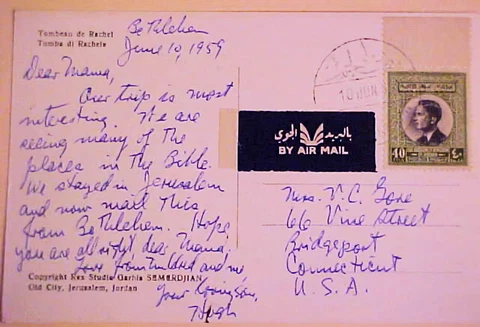 Tombeau de Rachel
Tomba di Rachele
Bethlehem
June 10, 1959
Dear Mama,
Our trip is most
interesting. We are
seeing many of the
places in the Bible.
We stayed in Jerusalem
and now mail this
from Bethlehem. Hope
you are all right, dear Mama.
Love from Mildred and me,
Your loving son,
Hugh
Copyright Rex Studio Garbis SEMERDJIAN
Old City, Jerusalem, Jordan
بالبريد الجوي
BY AIR MAIL
10 JUN
40 ٤٠
Mrs. V. C. Gore
66 Vine Street
Bridgeport
Connecticut
U. S. A.